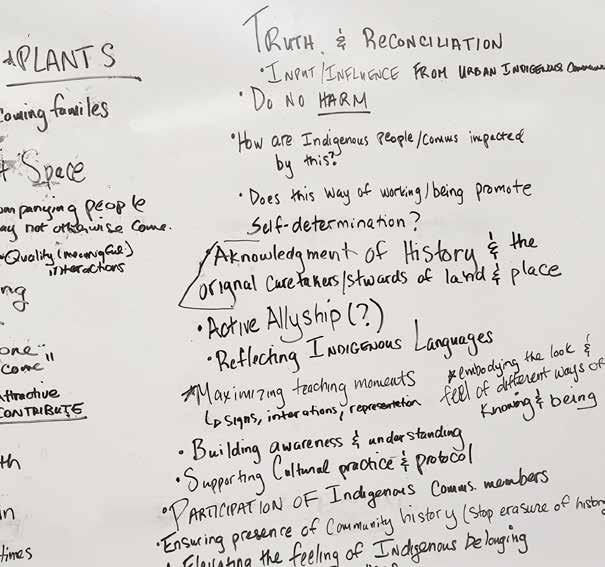 & PLANTS
coming familes
Space
ompanying people
ay not otherwise come.
Quality (meaningful)
interactions
ng
one"
come"
ttractive
CONTRIBUTE
th
in
times
TRUTH & RECONCILIATION
• INPUT/INFLUENCE FROM URBAN INDIGENOUS
• DO NO HARM
• How are Indigenous People/Comms impacted
by this?
• Does this way of working/being promote
Self-determination?
Aknowledgment of History & the
orignal caretakers/stwards of land & place
• Active Allyship (?)
• Reflecting INDIGENOUS Languages
* Maximizing teaching moments
↳ signs, interations, representation
* embodying the look &
feel of different ways of
Knowing & being
• Building awareness & understanding
• Supporting Cultural practice & protocol
• PARTICIPATION OF Indigenous Comms. members
• Ensuring presence of Community history (stop erasure of histor
Elevating the feeling of Indigenous belonging